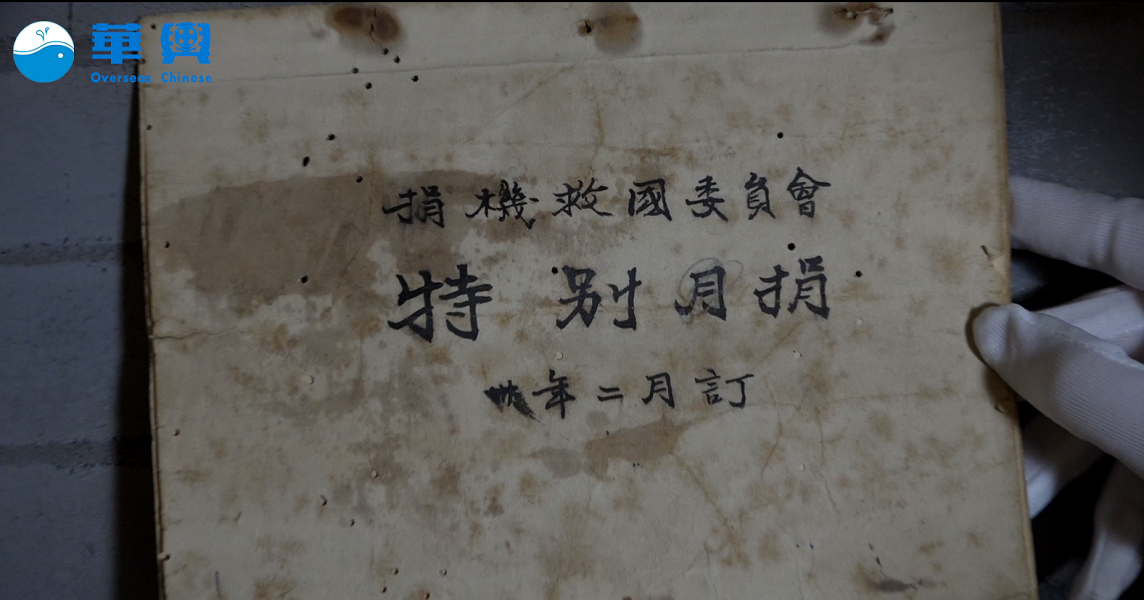 華興
Overseas Chinese
捐機救國委員會
特別月捐
卅年二月訂